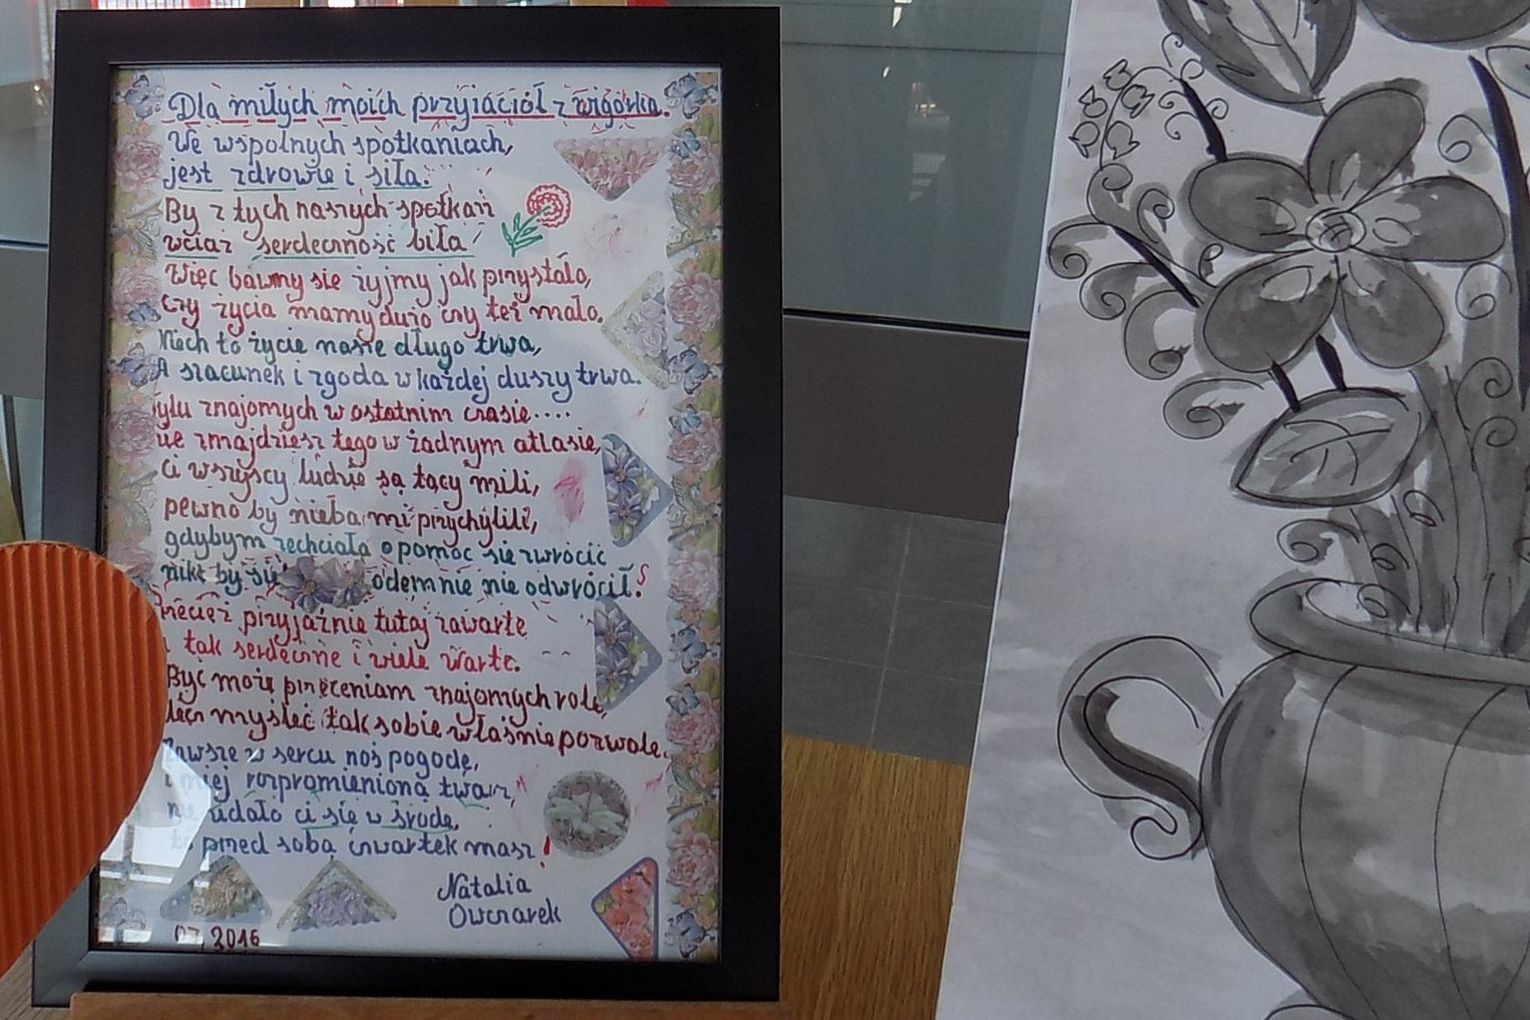 Dla miłych moich przyjaciół z wigorka.
We wspolnych spotkaniach,
jest zdrowie i siła.
By z tych naszych spotkań
wciaż serdeczność biła
Więc bawmy się żyjmy jak przystało,
Czy życia mamy dużo czy też mało.
Niech to życie nasze długo trwa,
A szacunek i zgoda w każdej duszy trwa.
znajomych w ostatnim czasie....
znajdziesz tego w żadnym atlasie,
ci wszyscy ludzie są tący mili,
pewno by nieba mi przychylili,
gdybym zechciała o pomoc się zwrócić
nikt by się odemnie nie odwrócił.
przyjaźnie tutaj zawarte
tak serdeczne i wiele warte.
Być możę przeceniam znajomych rolę,
lecz myśleć tak sobie właśnie pozwolę.
Zawsze w sercu noś pogodę,
i miej rozpromienioną twarz,
nie udało ci się w środę,
to przed sobą czwartek masz!
Natalia
Owczarek
07.2016